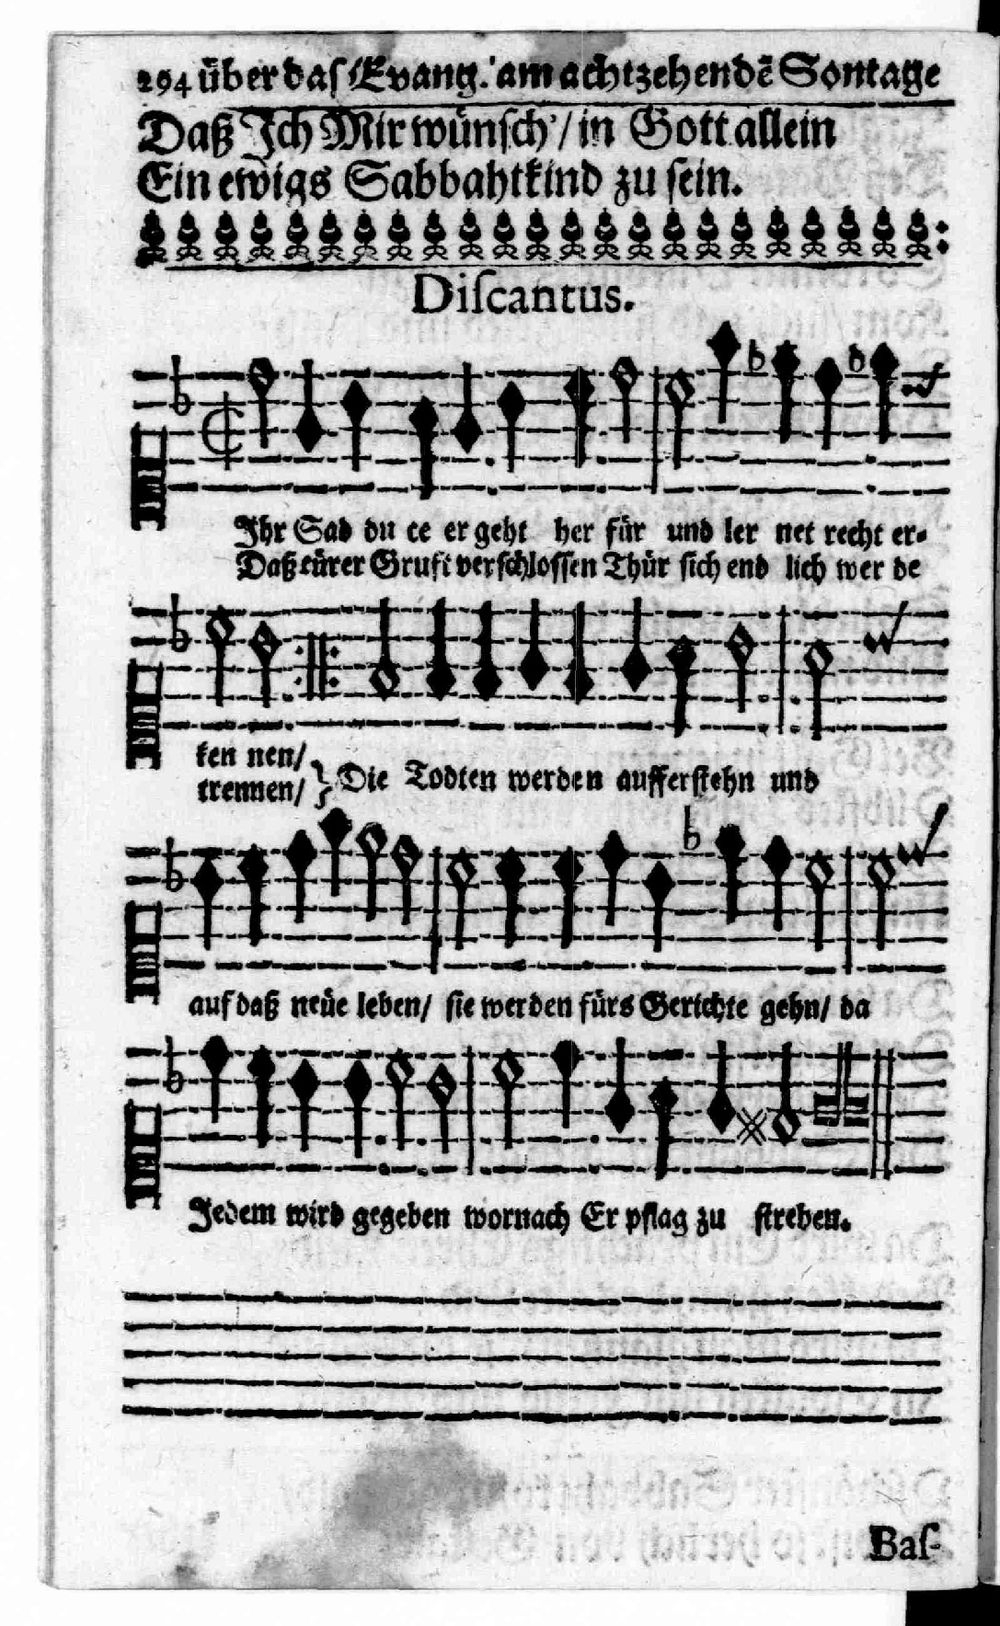 294 über das Evang. am achtzehendē Sontage
Daß Jch Mir wünsch' / in Gott allein
Ein ewigs Sabbahtkind zu sein.
Diſcantus.
Jhr Sad du ce er geht her für und ler net recht er-
Daß eürer Gruft verſchloſſen Thür ſich end lich wer de
ken nen/
trennen/ } Die Todten werden aufferſtehn und
auf daß neüe leben/ ſie werden fürs Gerichte gehn/ da
Jedem wird gegeben wornach Er pflag zu ſtreben.
Baſ-